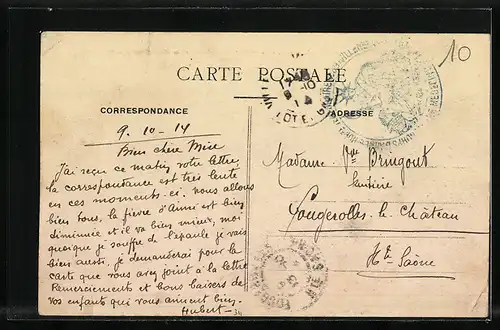 10
CARTE POSTALE
CORRESPONDANCE
ADRESSE
9-10-14
Bien chère Mère
J'ai reçu ce matin votre lettre,
la correspondance est très lente
en ces moments-ci, nous allons
bien tous, la fièvre d'Anni est bien
diminuée et il va bien mieux, moi
quoique je souffre de l'épaule je vais
bien aussi, je demanderai pour la
carte que vous avez joint à la lettre
Remerciements et bons baisers de
vos enfants que vous aiment bien.
Hubert
Madame Vve
Rentière
Fougerolles le Château
Hte Saône